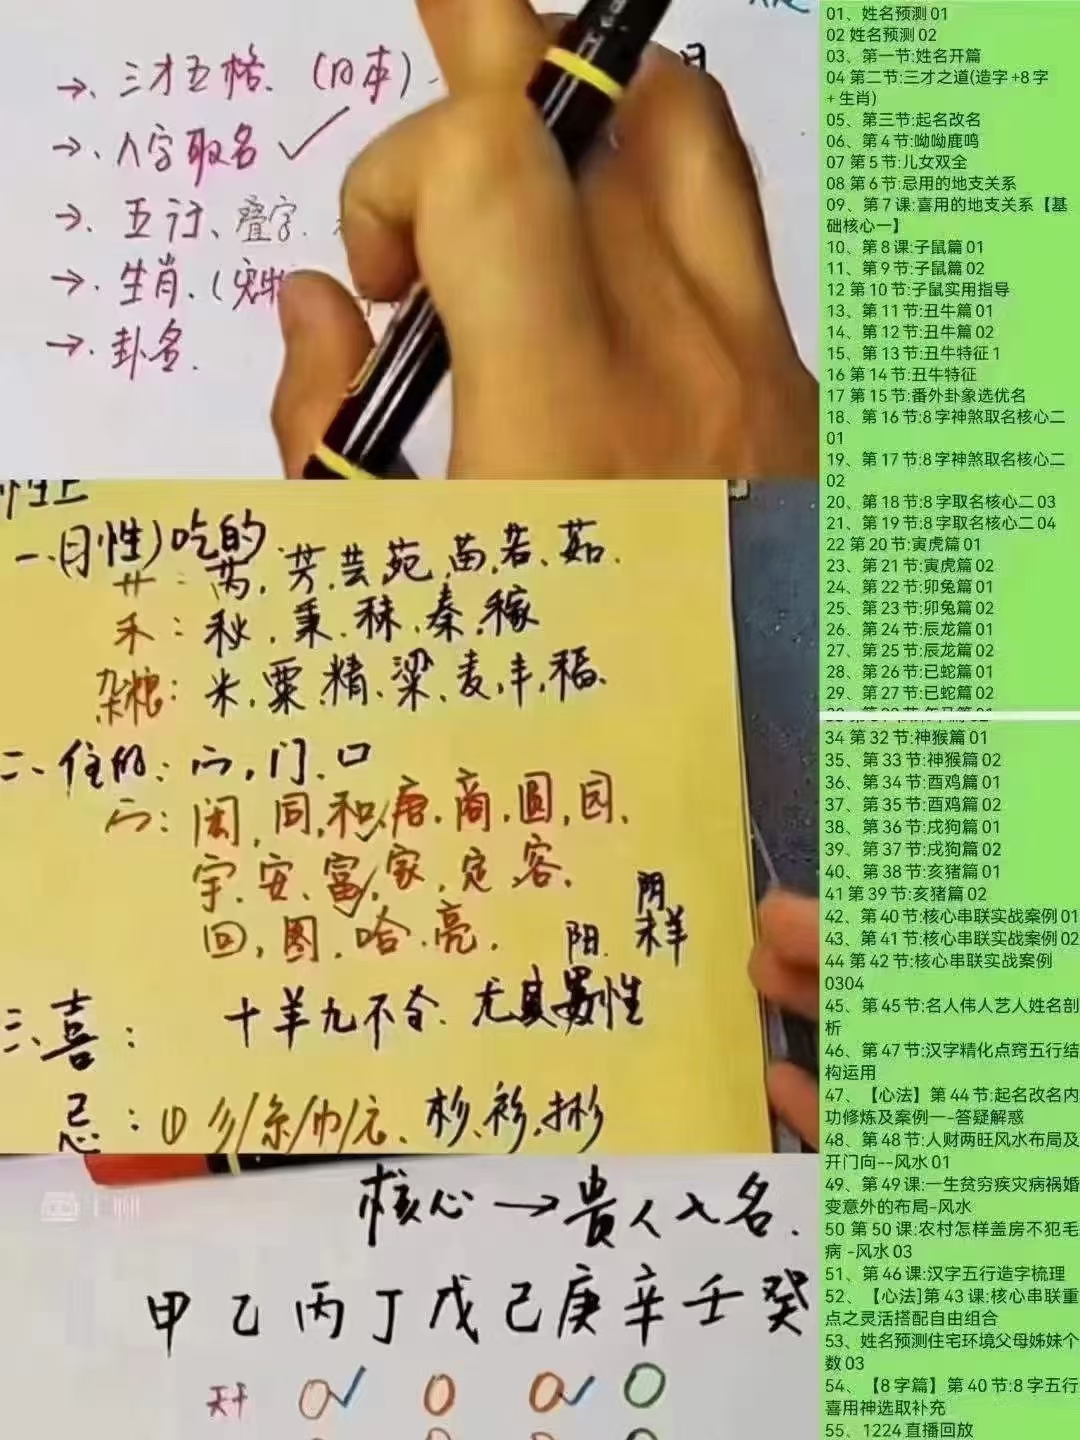 →、三才五格、(日本)
→、八字取名 ✓
→、五行、叠字、
→、生肖、(宠物
→、卦名.
性上
一、月性)吃的
艹：芮，芳、芸、苑、苗、若、茹.
禾：秋，秉、秣、秦、稼
杂粮：米，粟、精、梁、麦、丰，福、
二、住的：冖，门、口
冖：闳，同，和，唐，商，圆，园，
宇、安、富，家，定，客，
回，图，哈，亮，
阳 阴
祥
三、喜：十羊九不全、尤其男性
忌：①彡/糸/巾/衣、杉、衫、彬
核心→贵人入名.
甲乙丙丁戊己庚辛壬癸
天干
01、姓名预测01
02 姓名预测02
03、第一节:姓名开篇
04 第二节:三才之道(造字+8字
+生肖)
05、第三节:起名改名
06、第4节:呦呦鹿鸣
07 第5节:儿女双全
08 第6节:忌用的地支关系
09、第7课:喜用的地支关系【基
础核心一】
10、第8课:子鼠篇01
11、第9节:子鼠篇02
12 第10节:子鼠实用指导
13、第11节:丑牛篇01
14、第12节:丑牛篇02
15、第13节:丑牛特征1
16 第14节:丑牛特征
17 第15节:番外卦象选优名
18、第16节:8字神煞取名核心二
01
19、第17节:8字神煞取名核心二
02
20、第18节:8字取名核心二03
21、第19节:8字取名核心二04
22 第20节:寅虎篇01
23、第21节:寅虎篇02
24、第22节:卯兔篇01
25、第23节:卯兔篇02
26、第24节:辰龙篇01
27、第25节:辰龙篇02
28、第26节:已蛇篇01
29、第27节:已蛇篇02
34 第32节:神猴篇01
35、第33节:神猴篇02
36、第34节:酉鸡篇01
37、第35节:酉鸡篇02
38、第36节:戌狗篇01
39、第37节:戌狗篇02
40、第38节:亥猪篇01
41 第39节:亥猪篇02
42、第40节:核心串联实战案例01
43、第41节:核心串联实战案例02
44 第42节:核心串联实战案例
0304
45、第45节:名人伟人艺人姓名剖
析
46、第47节:汉字精化点窍五行结
构运用
47、【心法】第44节:起名改名内
功修炼及案例一-答疑解惑
48、第48节:人财两旺风水布局及
开门向--风水01
49、第49课:一生贫穷疾灾病祸婚
变意外的布局-风水
50 第50课:农村怎样盖房不犯毛
病 -风水03
51、第46课:汉字五行造字梳理
52、【心法]第43课:核心串联重
点之灵活搭配自由组合
53、姓名预测住宅环境父母姊妹个
数03
54、【8字篇】第40节:8字五行
喜用神选取补充
55、1224直播回放